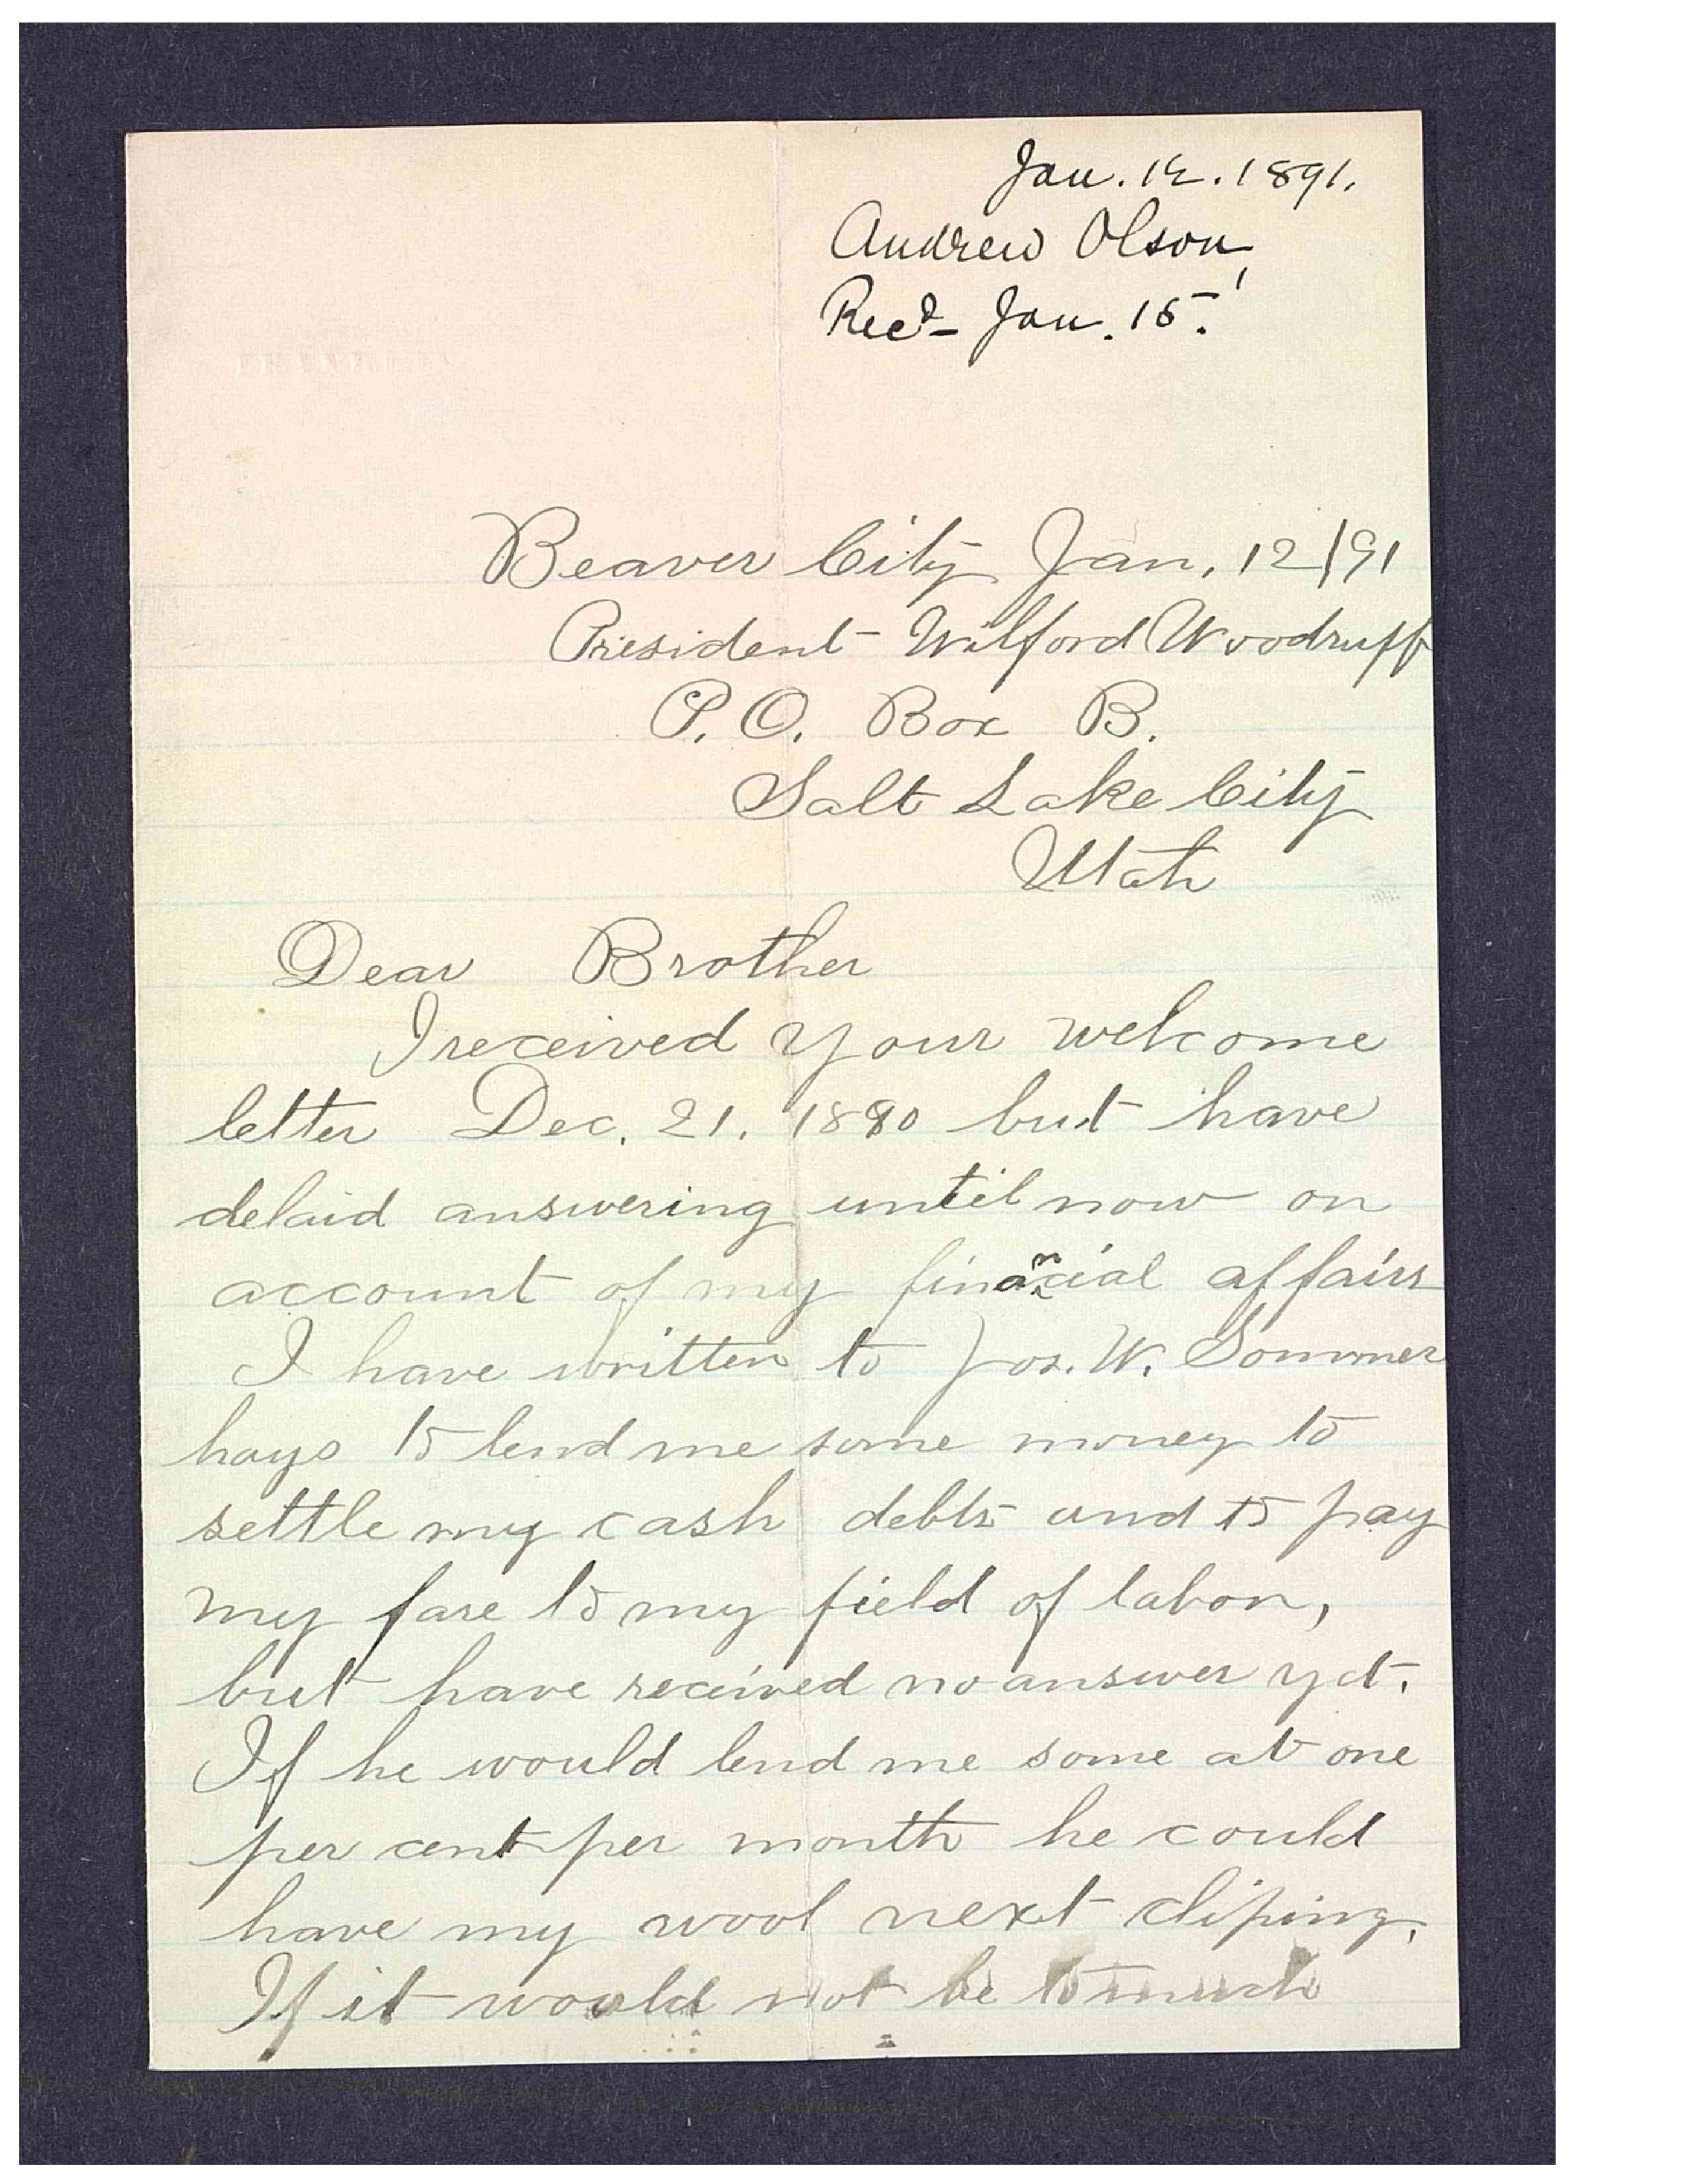 Jan. 12. 1891.
Andrew Olson,
Recd- Jan. 15.
Beaver City Jan, 12/91
President Wilford Woodruff
P.O. Box B.
Salt Lake City
Utah
Dear Brother
I received your welcome
letter Dec. 21. 1890 but have
delaid answering until now on
account of my financial affairs
I have written to Jos. W. Sommer
hays to lend me some money to
settle my cash debts and to pay
my fare to my field of labor,
but have received no answer yet.
If he would lend me some at one
per cent per month he could
have my wool next cliping.
If it would not be to much